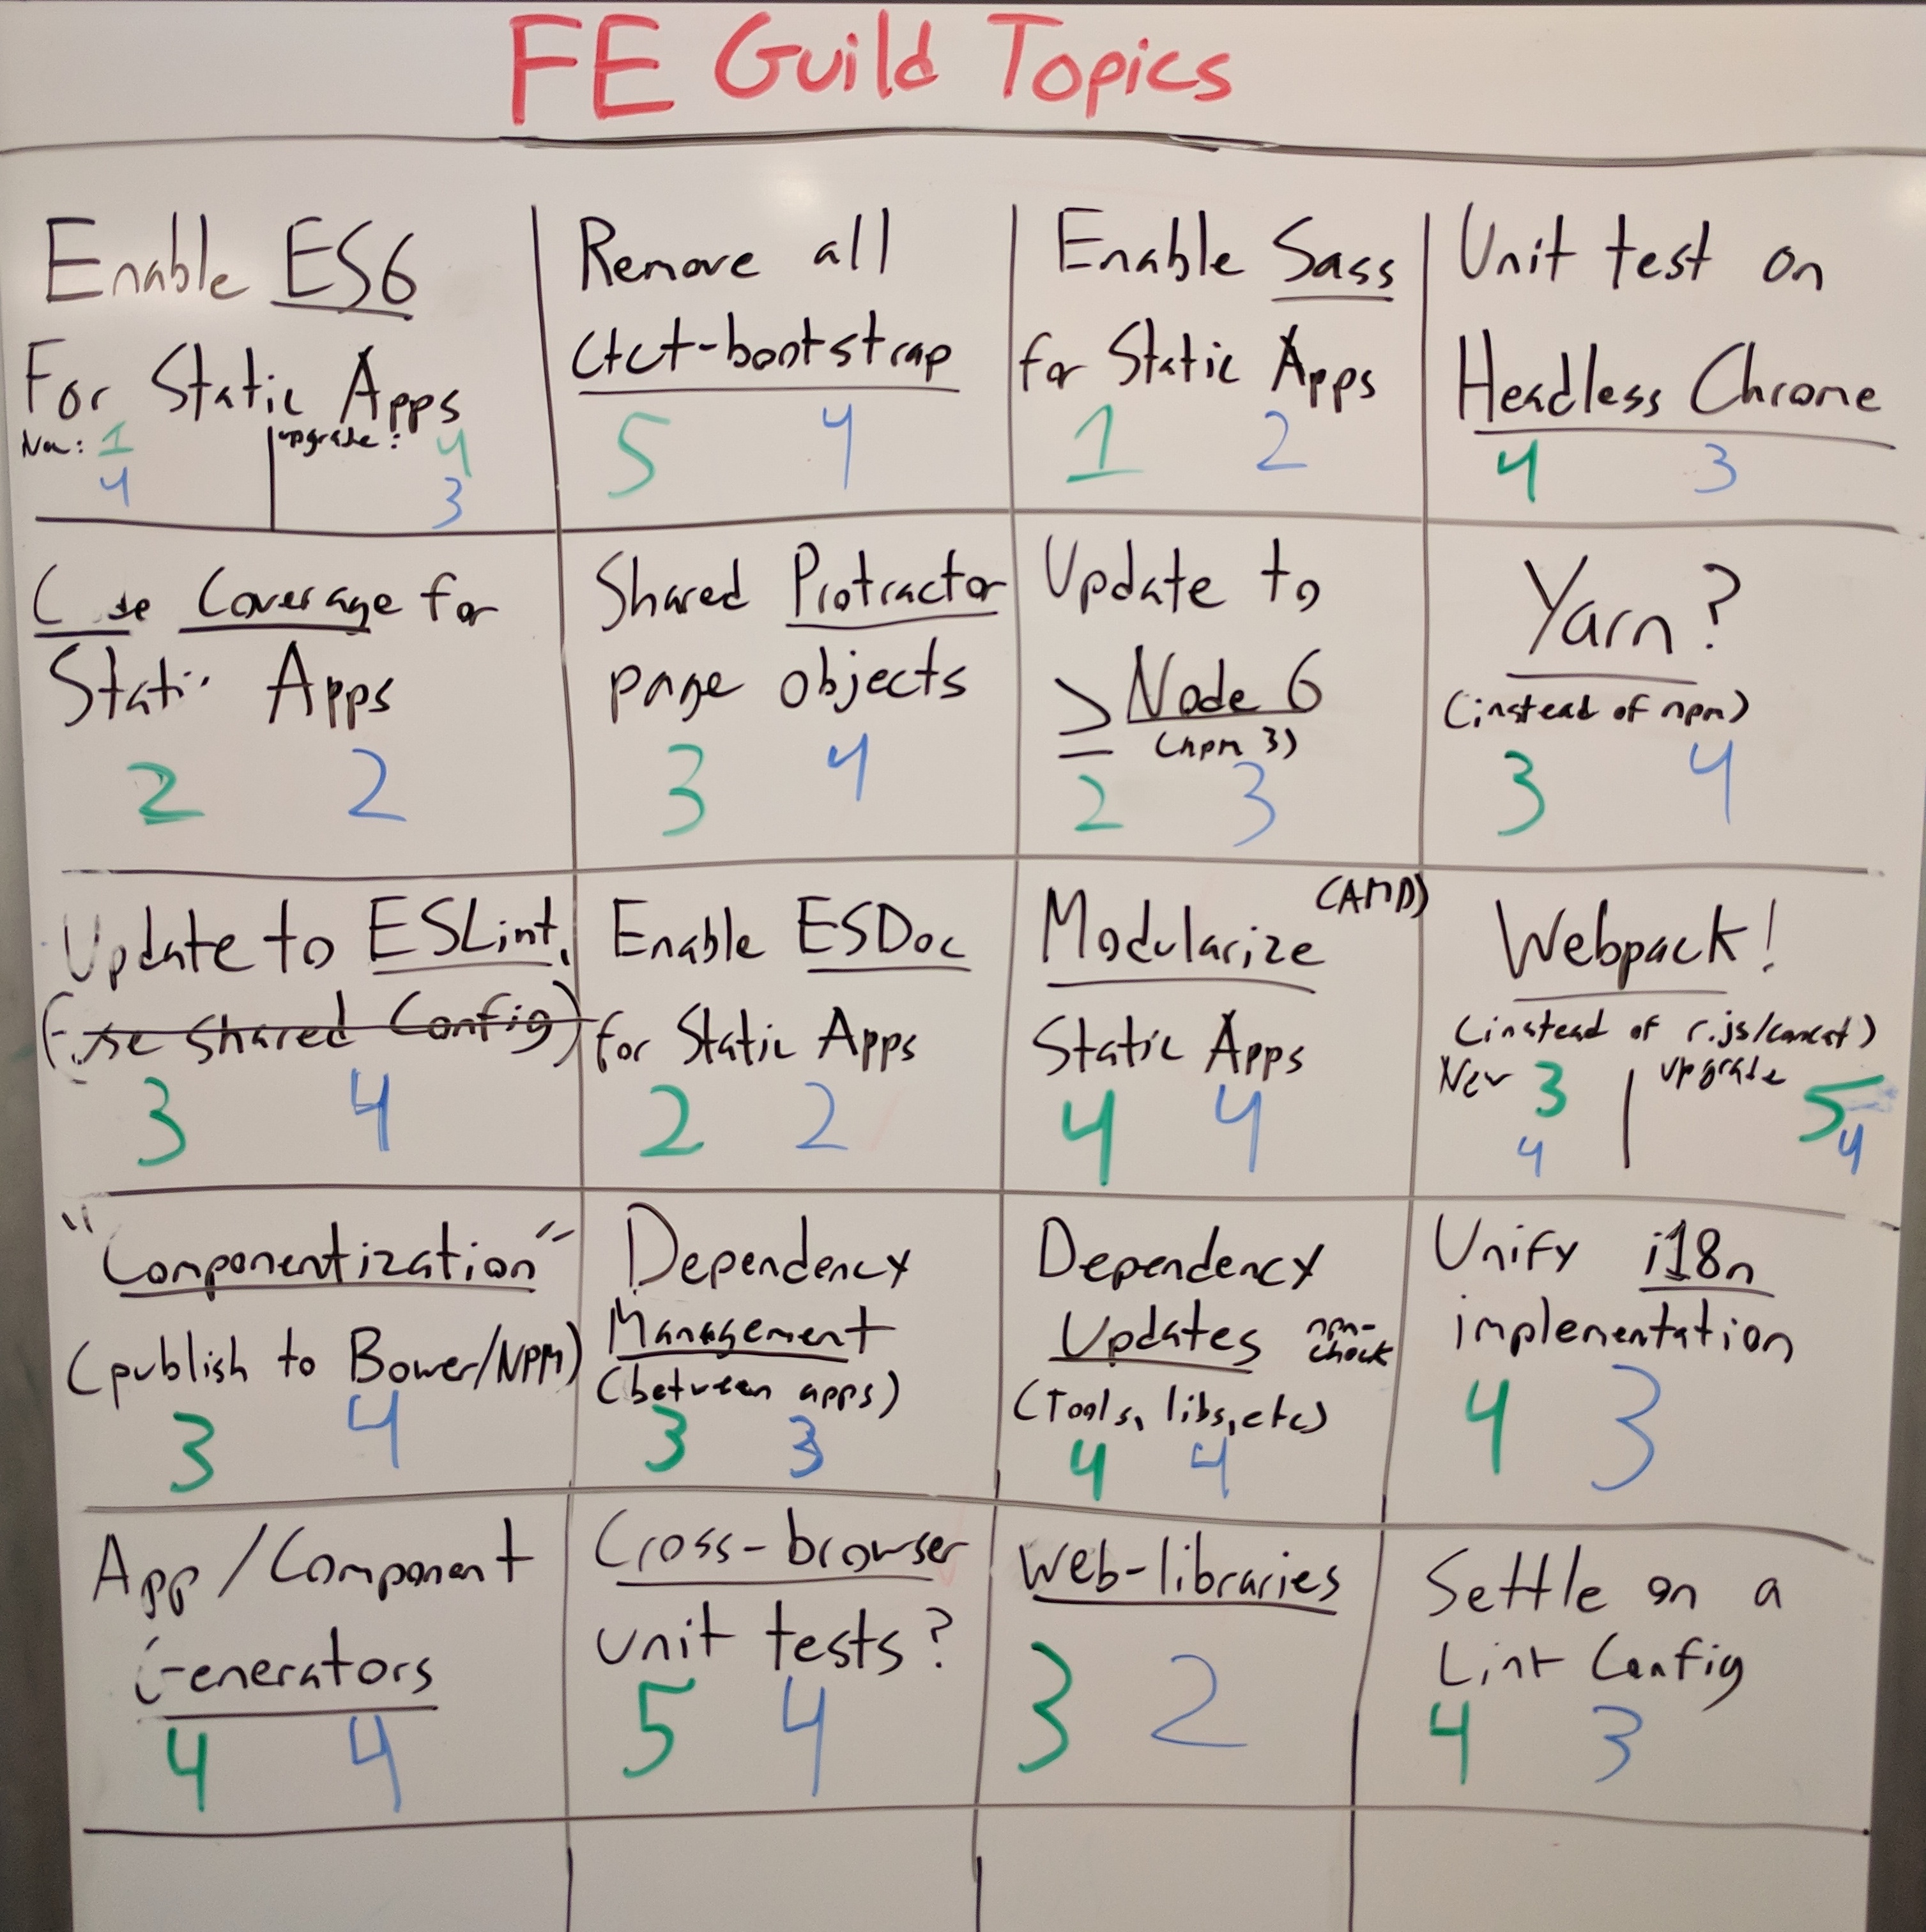 FE Guild Topics
Enable ES6
For Static Apps
New: 1
4
upgrade: 4
3
Remove all
ctct-bootstrap
5 4
Enable Sass
for Static Apps
1 2
Unit test on
Headless Chrome
4 3
Code Coverage for
Static Apps
2 2
Shared Protractor
page objects
3 4
Update to
≥ Node 6
(npm 3)
2 3
Yarn?
(instead of npm)
3 4
Update to ESLint.
(use shared Config)
3 4
Enable ESDoc
for Static Apps
2 2
Modularize (AMD)
Static Apps
4 4
Webpack!
(instead of r.js/concat)
New 3
4
upgrade 5
4
"Componentization"
(publish to Bower/NPM)
3 4
Dependency
Management
(between apps)
3 3
Dependency
Updates npm-
check
(Tools, libs, etc)
4 4
Unify i18n
implementation
4 3
App/Component
Generators
4 4
Cross-browser
unit tests?
5 4
Web-libraries
3 2
Settle on a
Lint Config
4 3